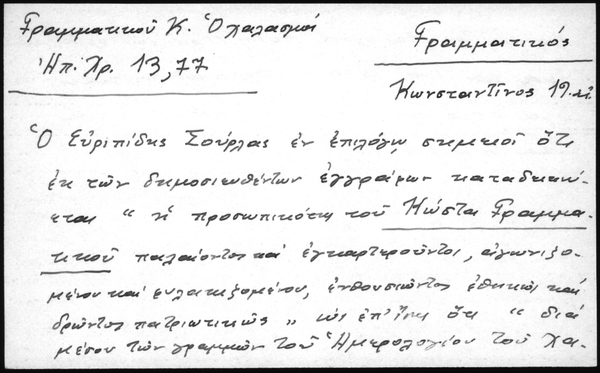 Γραμματικοῦ Κ. Ὁ χαλασμοί
Ἠπ. Χρ. 13, 77
Γραμματικός
Κωνσταντῖνος 19.
Ὁ Εὐριπίδης Σούρλας ἐν ἐπιλόγῳ σημειοῖ ὅτι
ἐκ τῶν δημοσιευθέντων ἐγγράφων καταδεικνύ-
εται " ἡ προσωπικότης τοῦ Κώστα Γραμμα-
τικοῦ παλαίοντος καί ἐγκαρτεροῦντος, ἀγωνιζο-
μένου καί φυλακιζομένου, ἐνθουσιῶντος ἐθνικῶς καί
δρῶντος πατριωτικῶς " ὡς ἐπ' ἴσης ὅτι " διά
μέσου τῶν γραμμῶν τοῦ Ἡμερολογίου τοῦ Χα-